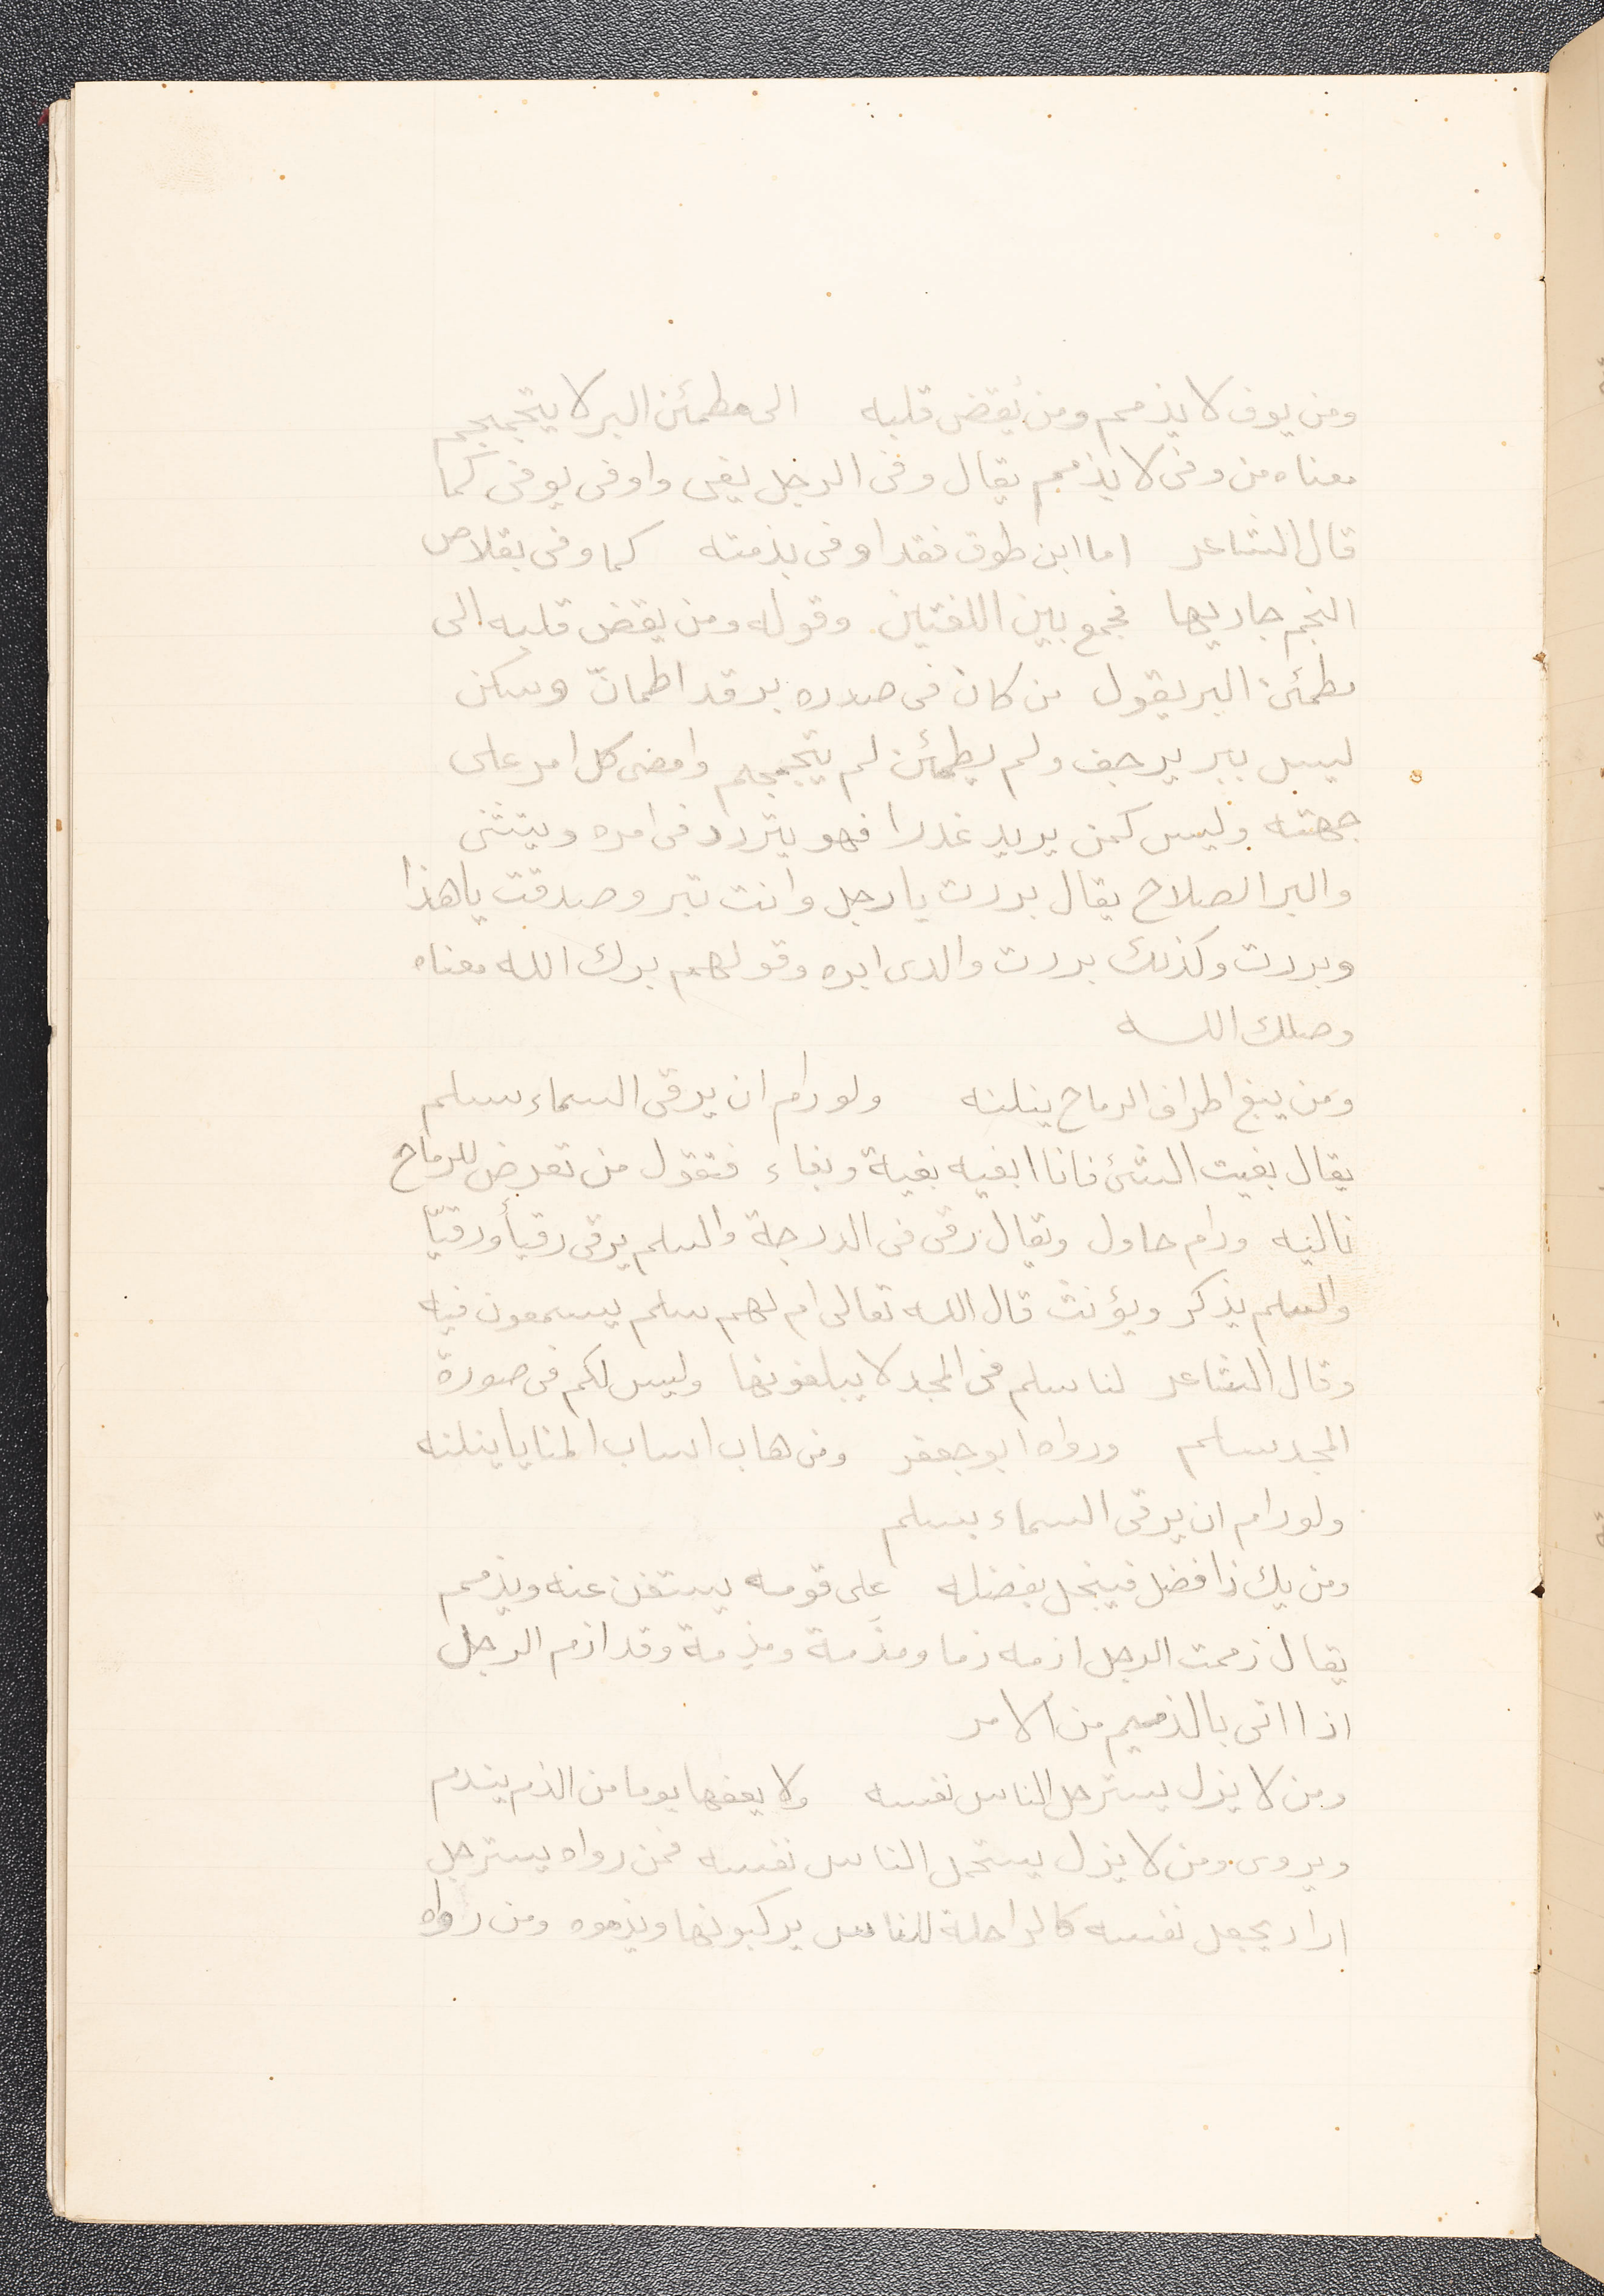 ومن يوف لا يذمم ومن يُقض قلبه   الى مطمئن البر لا يتجمجم
معناه من وفى لا يذمم يقال وفى الرجل يفى واوفى يوفى كما
قال الشاعر   اما ابن طوق فقد اوفى بذمته   كما وفى بقلاص
النجم حاديها   فجمع بين اللغتين وقوله ومن يقض قلبه الى
مطمئن البر يقول من كان فى صدره بر قد اطمانّ وسكن
ليس ببر يرجف ولم يطمئن لم يتجمجم وامضى كل امر على
جهته وليس كمن يريد غدرا فهو يتردد فى امره ويتثنى
والبر الصلاح يقال بررت يا رجل وانت تبر وصدقت يا هذا
وبررت وكذلك بررت والدى ابره وقولهم برك الله معناه
وصلك الله
ومن يبغ اطراف الرماح ينلنه   ولو رام ان يرقى السماء بسلم
يقال بغيت الشئ فانا ابغيه بغية وبغاء فتقول من تعرض للرماح
نالنه ورام حاول ويقال رقى فى الدرجة والسلم يرقى رقيأ ورقيّا
والسلم يذكر ويؤنث قال الله تعالى ام لهم سلم يسمعون فيه
وقال الشاعر   لنا سلم فى المجد لا يبلغونها   وليس لكم فى صورة
المجد سلم   ورواه ابو جعفر   ومن هاب اسباب المنايا ينلنه
ولو رام ان يرقى السماء بسلم
ومن يك ذا فضل فيبخل بفضله   على قومه يستغن عنه ويذمم
يقال ذممت الرجل اذمه ذما ومذَمة ومذِمة وقد اذم الرجل
اذا اتى بالذميم من الامر
ومن لا يزل يسترحل الناس نفسه   ولا يعفها يوما من الذم يندم
ويروى ومن لا يزل يستحمل الناس نفسه فمن رواه يسترحل
اراد يجعل نفسه كالراحلة للناس يركبونها ويذموه ومن رواه